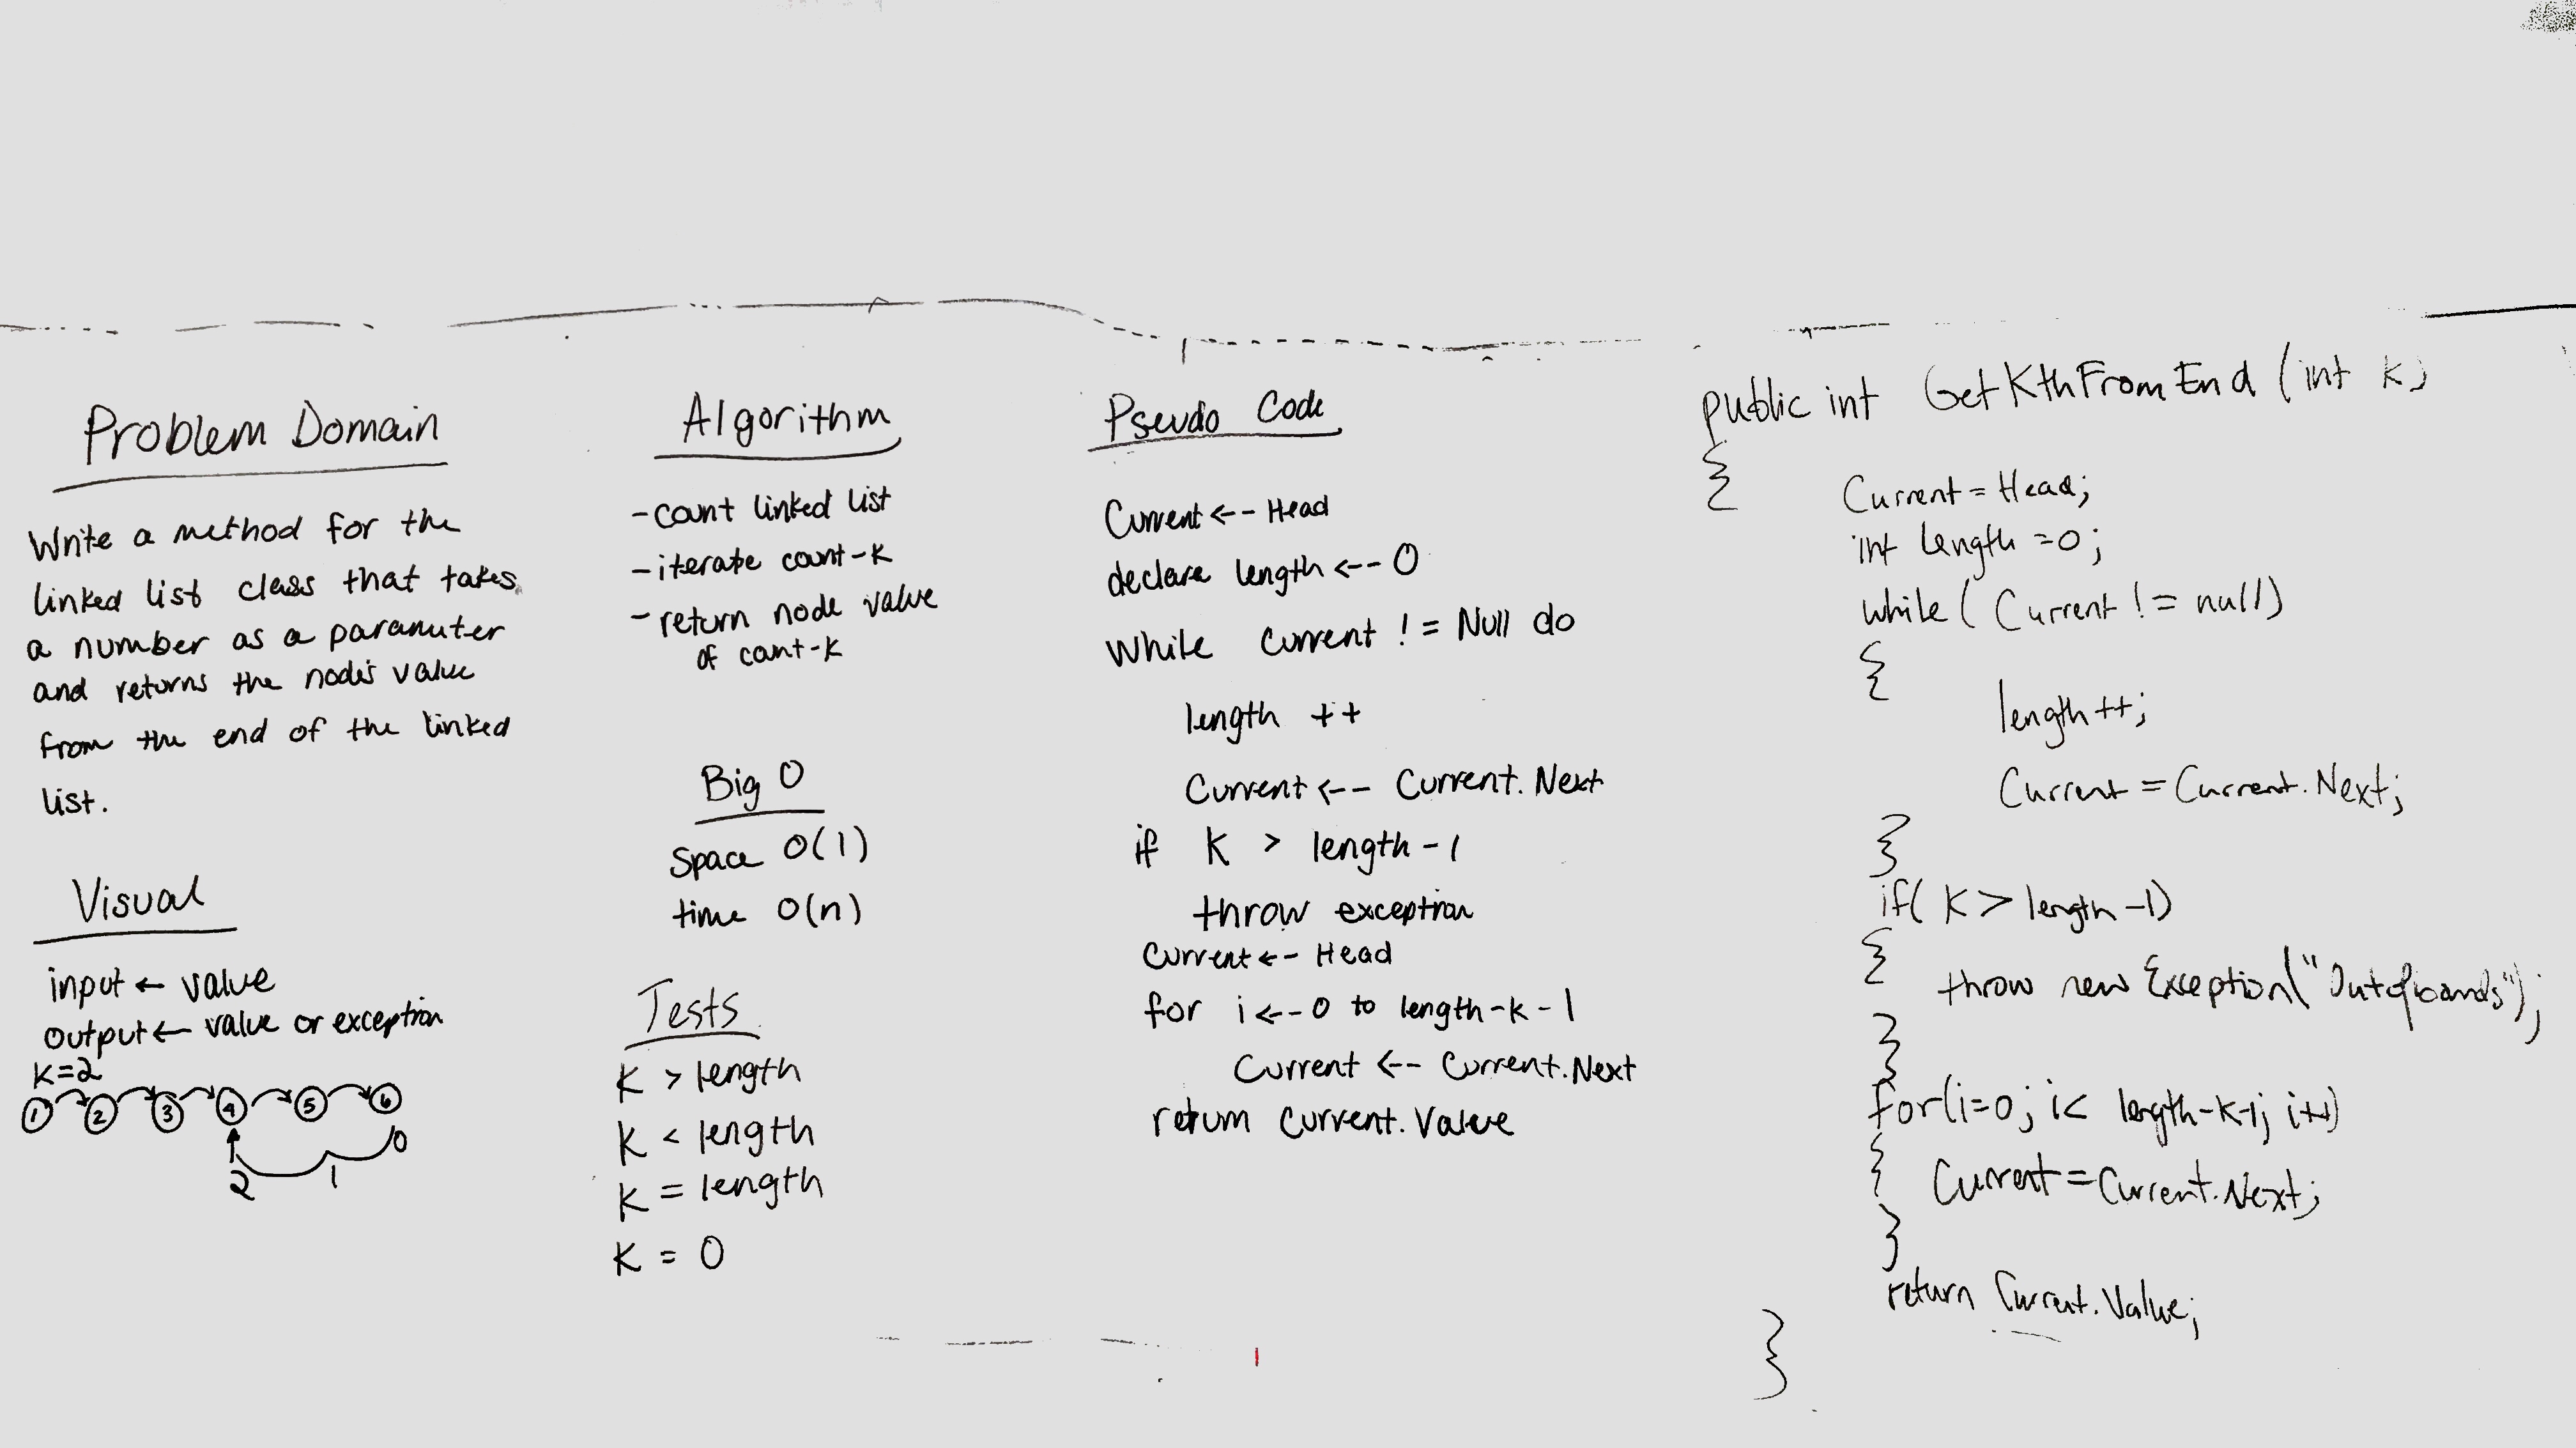 Problem Domain
Write a method for the
linked list class that takes
a number as a paramuter
and returns the node's value
from the end of the linked
list.
Visual
input ← value
output ← value or exception
K=2
1 2 3 4 5 6
0
1
2
Algorithm
- count linked list
- iterate count-k
- return node value
of count-k
Big O
Space O(1)
time O(n)
Tests
K > length
K < length
K = length
K = 0
Pseudo Code
Current <-- Head
declare length <-- 0
While Current != Null do
length ++
Current <-- Current.Next
if K > length-1
throw exception
Current <-- Head
for i <-- 0 to length-k-1
Current <-- Current.Next
return Current.Value
public int GetKthFromEnd (int k)
{
Current = Head;
int length = 0;
while ( Current != null)
{
length++;
Current = Current.Next;
}
if( K > length -1)
{
throw new Exception("Outofbounds");
}
for(i=0; i< length-k-1; i++)
{
Current = Current.Next;
}
return Current.Value;
}